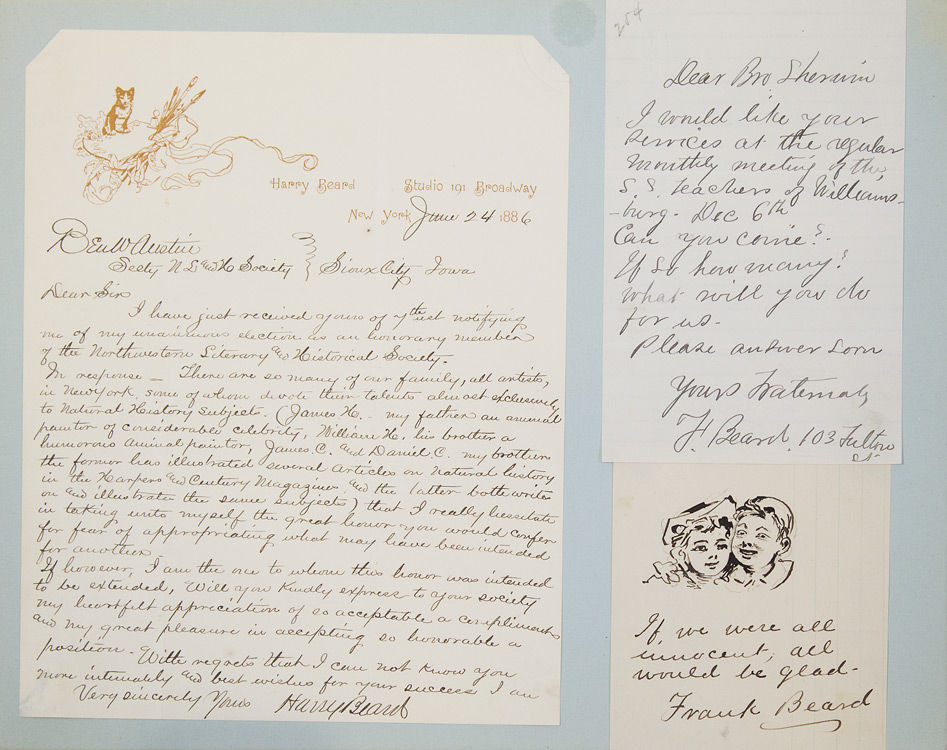 Harry Beard Studio 191 Broadway
New York June 24 1886
Ben W Austin
Secty N L and H Society } Sioux City Iowa
Dear Sir
I have just received yours of 7th inst notifying
me of my unanimous election as an honorary member
of the Northwestern Literary and Historical Society.
In response – There are so many of our family, all artists,
in New York, some of whom devote their talents almost exclusively
to Natural History Subjects. (James H. – my father an animal
painter of considerable celebrity, William H. his brother a
humorous animal painter, James C. and Daniel C. my brothers
the former has illustrated several articles on Natural history
in the Harpers and Century Magazines and the latter both writes
on and illustrates the same subjects) that I really hessitate
in taking unto myself the great honor you would confer
for fear of appropriating what may have been intended
for another –
If however, I am the one to whom this honor was intended
to be extended, Will you Kindly express to your society
my heartfelt appreciation of so acceptable a compliment
and my great pleasure in accepting so honorable a
position. –
With regrets that I can not know you
more intimately and best wishes for your success I am
Very sincerely Yours Harry Beard
254
Dear Bro Sherwin
I would like your
services at the regular
monthly meeting of the
S. S. teachers of Williams-
-burg. Dec 6th
Can you come?.
If so how many?
What will you do
for us –
Please answer soon
Yours Fraternaly
F. Beard. 103 Fulton
St.
If we were all
innocent, all
would be glad –
Frank Beard